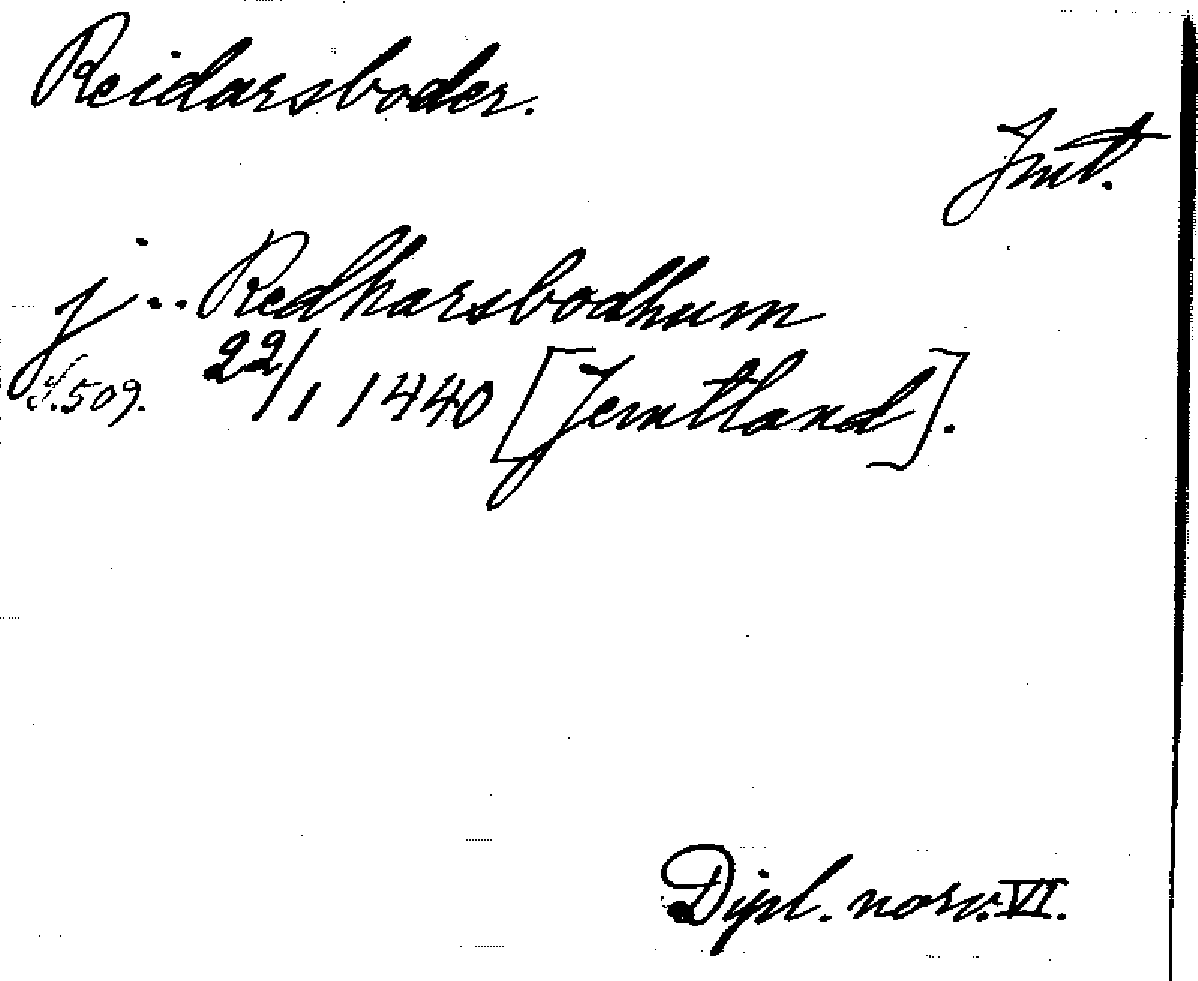 Reidarsboder.
Jmt.
j .. Redharsbodhum
S. 509. 22/1 1440 [Jemtland].
Dipl. norv. VI.